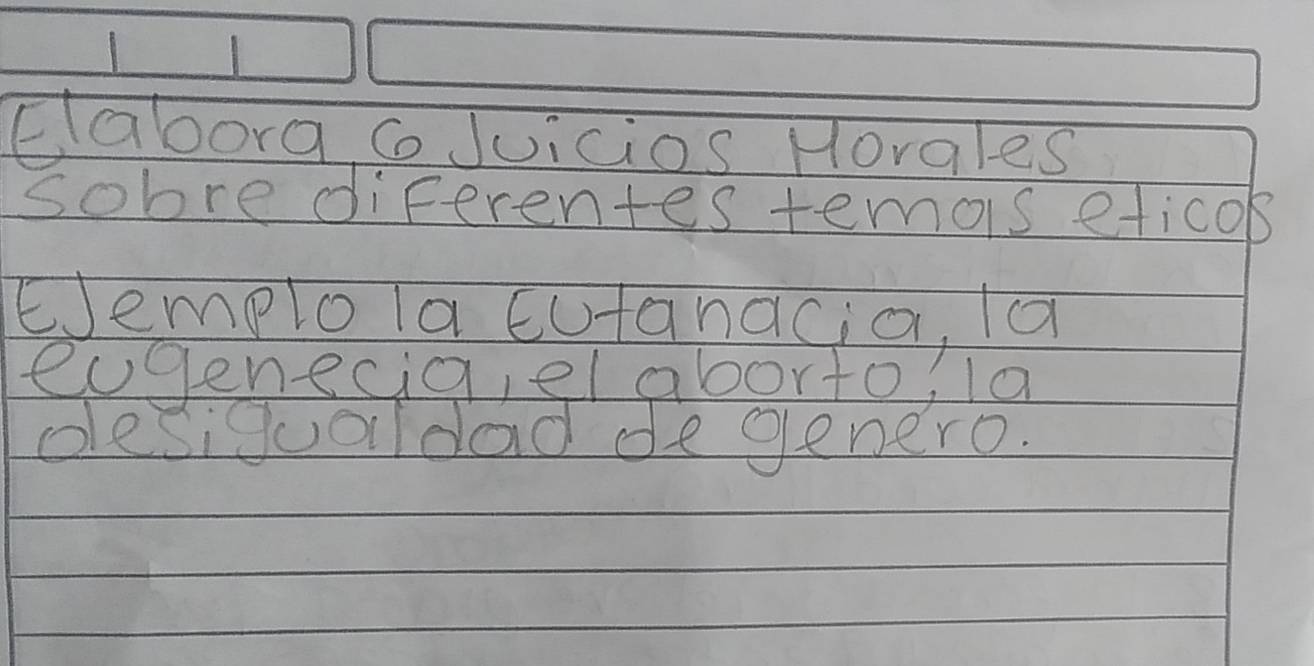 Elabora 6 Juicios Morales
sobre diferentes temas eticos
EJemplo la Eutanacia, la
eugenecia, el aborto, la
desigualdad de genero.